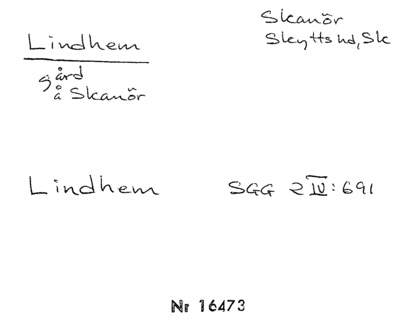 Lindhem
gård
å Skanör
Skanör
Skytts hd, Sk
Lindhem SGG 2 IV: 691
Nr 16473